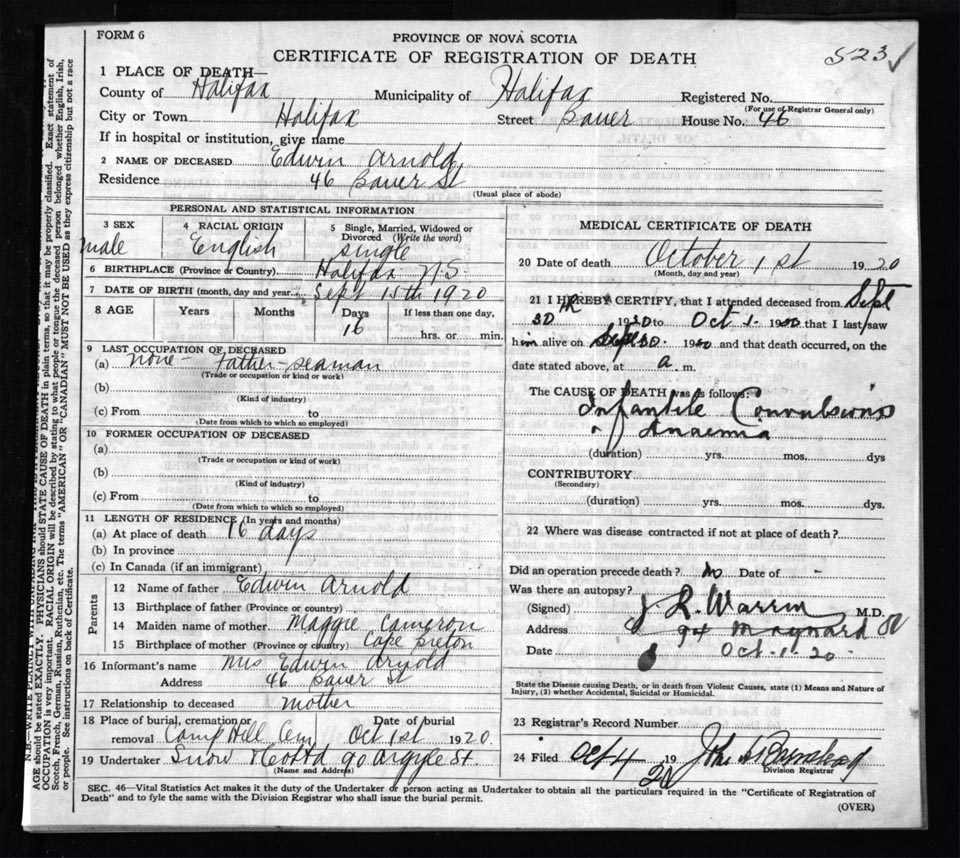 FORM 6
PROVINCE OF NOVA SCOTIA
CERTIFICATE OF REGISTRATION OF DEATH
523 ✓
1 PLACE OF DEATH—
County of Halifax Municipality of Halifax Registered No.
(For use of Registrar General only)
City or Town Halifax Street Bauer House No. 46
If in hospital or institution, give name
2 NAME OF DECEASED Edwin Arnold
Residence 46 Bauer St
(Usual place of abode)
PERSONAL AND STATISTICAL INFORMATION
3 SEX 4 RACIAL ORIGIN 5 Single, Married, Widowed or Divorced (Write the word)
male English single
6 BIRTHPLACE (Province or Country) Halifax N.S.
7 DATE OF BIRTH (month, day and year) Sept 15th 1920
8 AGE Years Months Days If less than one day,
16 hrs. or min.
9 LAST OCCUPATION OF DECEASED
(a) none - Father - seaman
(Trade or occupation or kind or work)
(b)
(Kind of industry)
(c) From to
(Date from which to which so employed)
10 FORMER OCCUPATION OF DECEASED
(a)
(Trade or occupation or kind of work)
(b)
(Kind of industry)
(c) From to
(Date from which to which so employed)
11 LENGTH OF RESIDENCE (In years and months)
(a) At place of death 16 days
(b) In province
(c) In Canada (if an immigrant)
Parents
12 Name of father Edwin Arnold
13 Birthplace of father (Province or country)
14 Maiden name of mother Maggie Cameron
15 Birthplace of mother (Province or country) Cape Breton
16 Informant's name Mrs Edwin Arnold
Address 46 Bauer St
17 Relationship to deceased mother
18 Place of burial, cremation or removal Camp Hill Cem Date of burial Oct 1st 1920
19 Undertaker Snow & Co Ltd 90 Argyle St.
(Name and Address)
MEDICAL CERTIFICATE OF DEATH
20 Date of death October 1st 1920
(Month, day and year)
21 I HEREBY CERTIFY, that I attended deceased from Sept
30th 1920 to Oct 1. 1920 that I last saw
him alive on Sept 30. 1920 and that death occurred, on the
date stated above, at a m.
The CAUSE OF DEATH was as follows:
Infantile Convulsions
Anaemia
(duration) yrs. mos. dys
CONTRIBUTORY
(Secondary)
(duration) yrs. mos. dys.
22 Where was disease contracted if not at place of death?
Did an operation precede death? no Date of -
Was there an autopsy?
(Signed) J L. Warren M.D.
Address 94 Maynard St
Date Oct. 1. 20.
State the Disease causing Death, or in death from Violent Causes, state (1) Means and Nature of
Injury, (2) whether Accidental, Suicidal or Homicidal.
23 Registrar's Record Number
24 Filed Oct 4 1920 John
Division Registrar
SEC. 46—Vital Statistics Act makes it the duty of the Undertaker or person acting as Undertaker to obtain all the particulars required in the "Certificate of Registration of
Death" and to fyle the same with the Division Registrar who shall issue the burial permit.
(OVER)
N.B.—WRITE PLAINLY WITH UNFADING
AGE should be stated EXACTLY. PHYSICIANS should STATE CAUSE OF DEATH in plain terms, so that it may be properly classified. Exact statement of
OCCUPATION is very important. RACIAL ORIGIN will be described by stating to what people or tongue the deceased person belonged whether English, Irish,
Scotch, French, German, Russian, Ruthenian, etc. The terms "AMERICAN" OR "CANADIAN" MUST NOT BE USED as they express citizenship but not a race
or people. See instructions on back of Certificate.